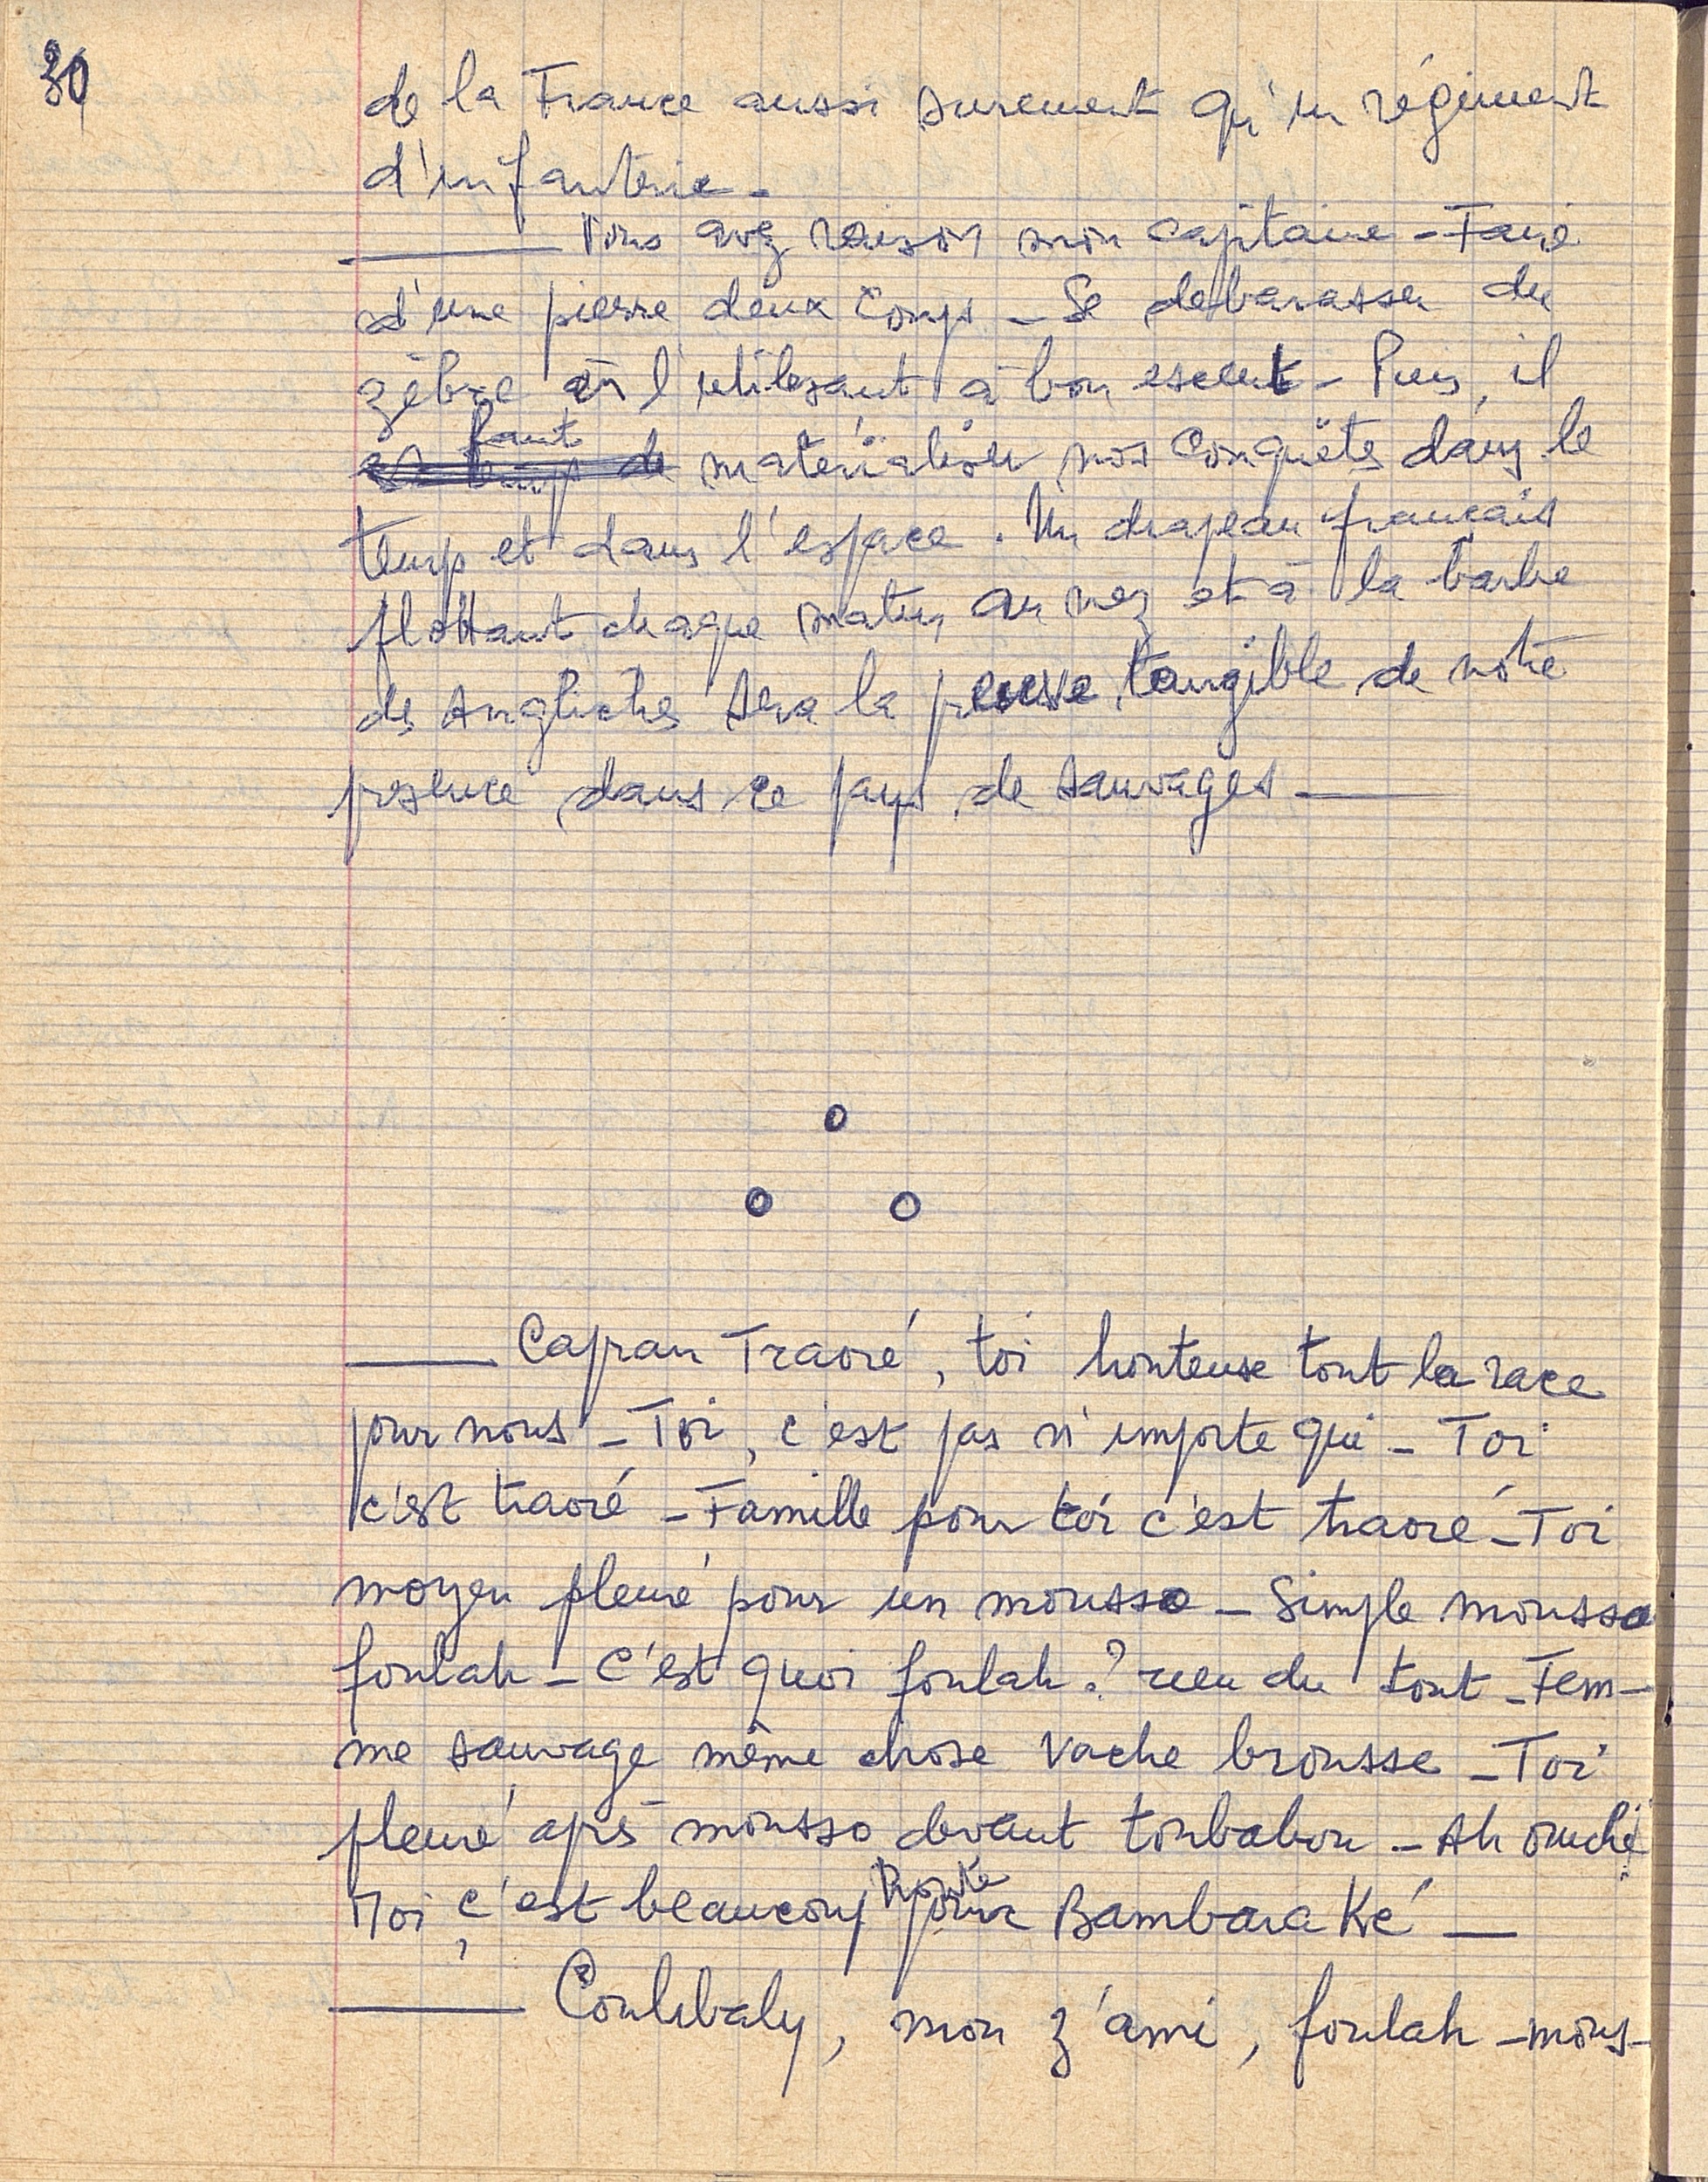 30
de la France aussi surement qu'un régiment
d'infanterie -
—— Vous avez raison mon capitaine - Faire
d'une pierre deux coups - Se debarasser du
zèbre en l'utilisant à bon escient - Puis, il
faut
matérialiser nos conquêtes dans le
temps et dans l'espace. Un drapeau français
flottant chaque matin, au nez et à la barbe
des Angliches sera la preuve tangible de notre
presence dans ce pays de sauvages ——
o
o o
—— Capran Traoré, toi honteuse tout la race
pour nous - Toi, c'est pas n'importe qui - Toi
c'est traoré - Famille pour toi c'est traoré - Toi
moyen pleuré pour un mousso - Simple mousso
foulah - C'est quoi foulah ? rien du tout - Fem-
me sauvage même chose vache brousse - Toi
pleuré aprè mousso devant toubabou - Ah ouché
Moi, c'est beaucoup honte pour Bambara Ké —
—— Coulibaly, mon z'ami, foulah - mous-